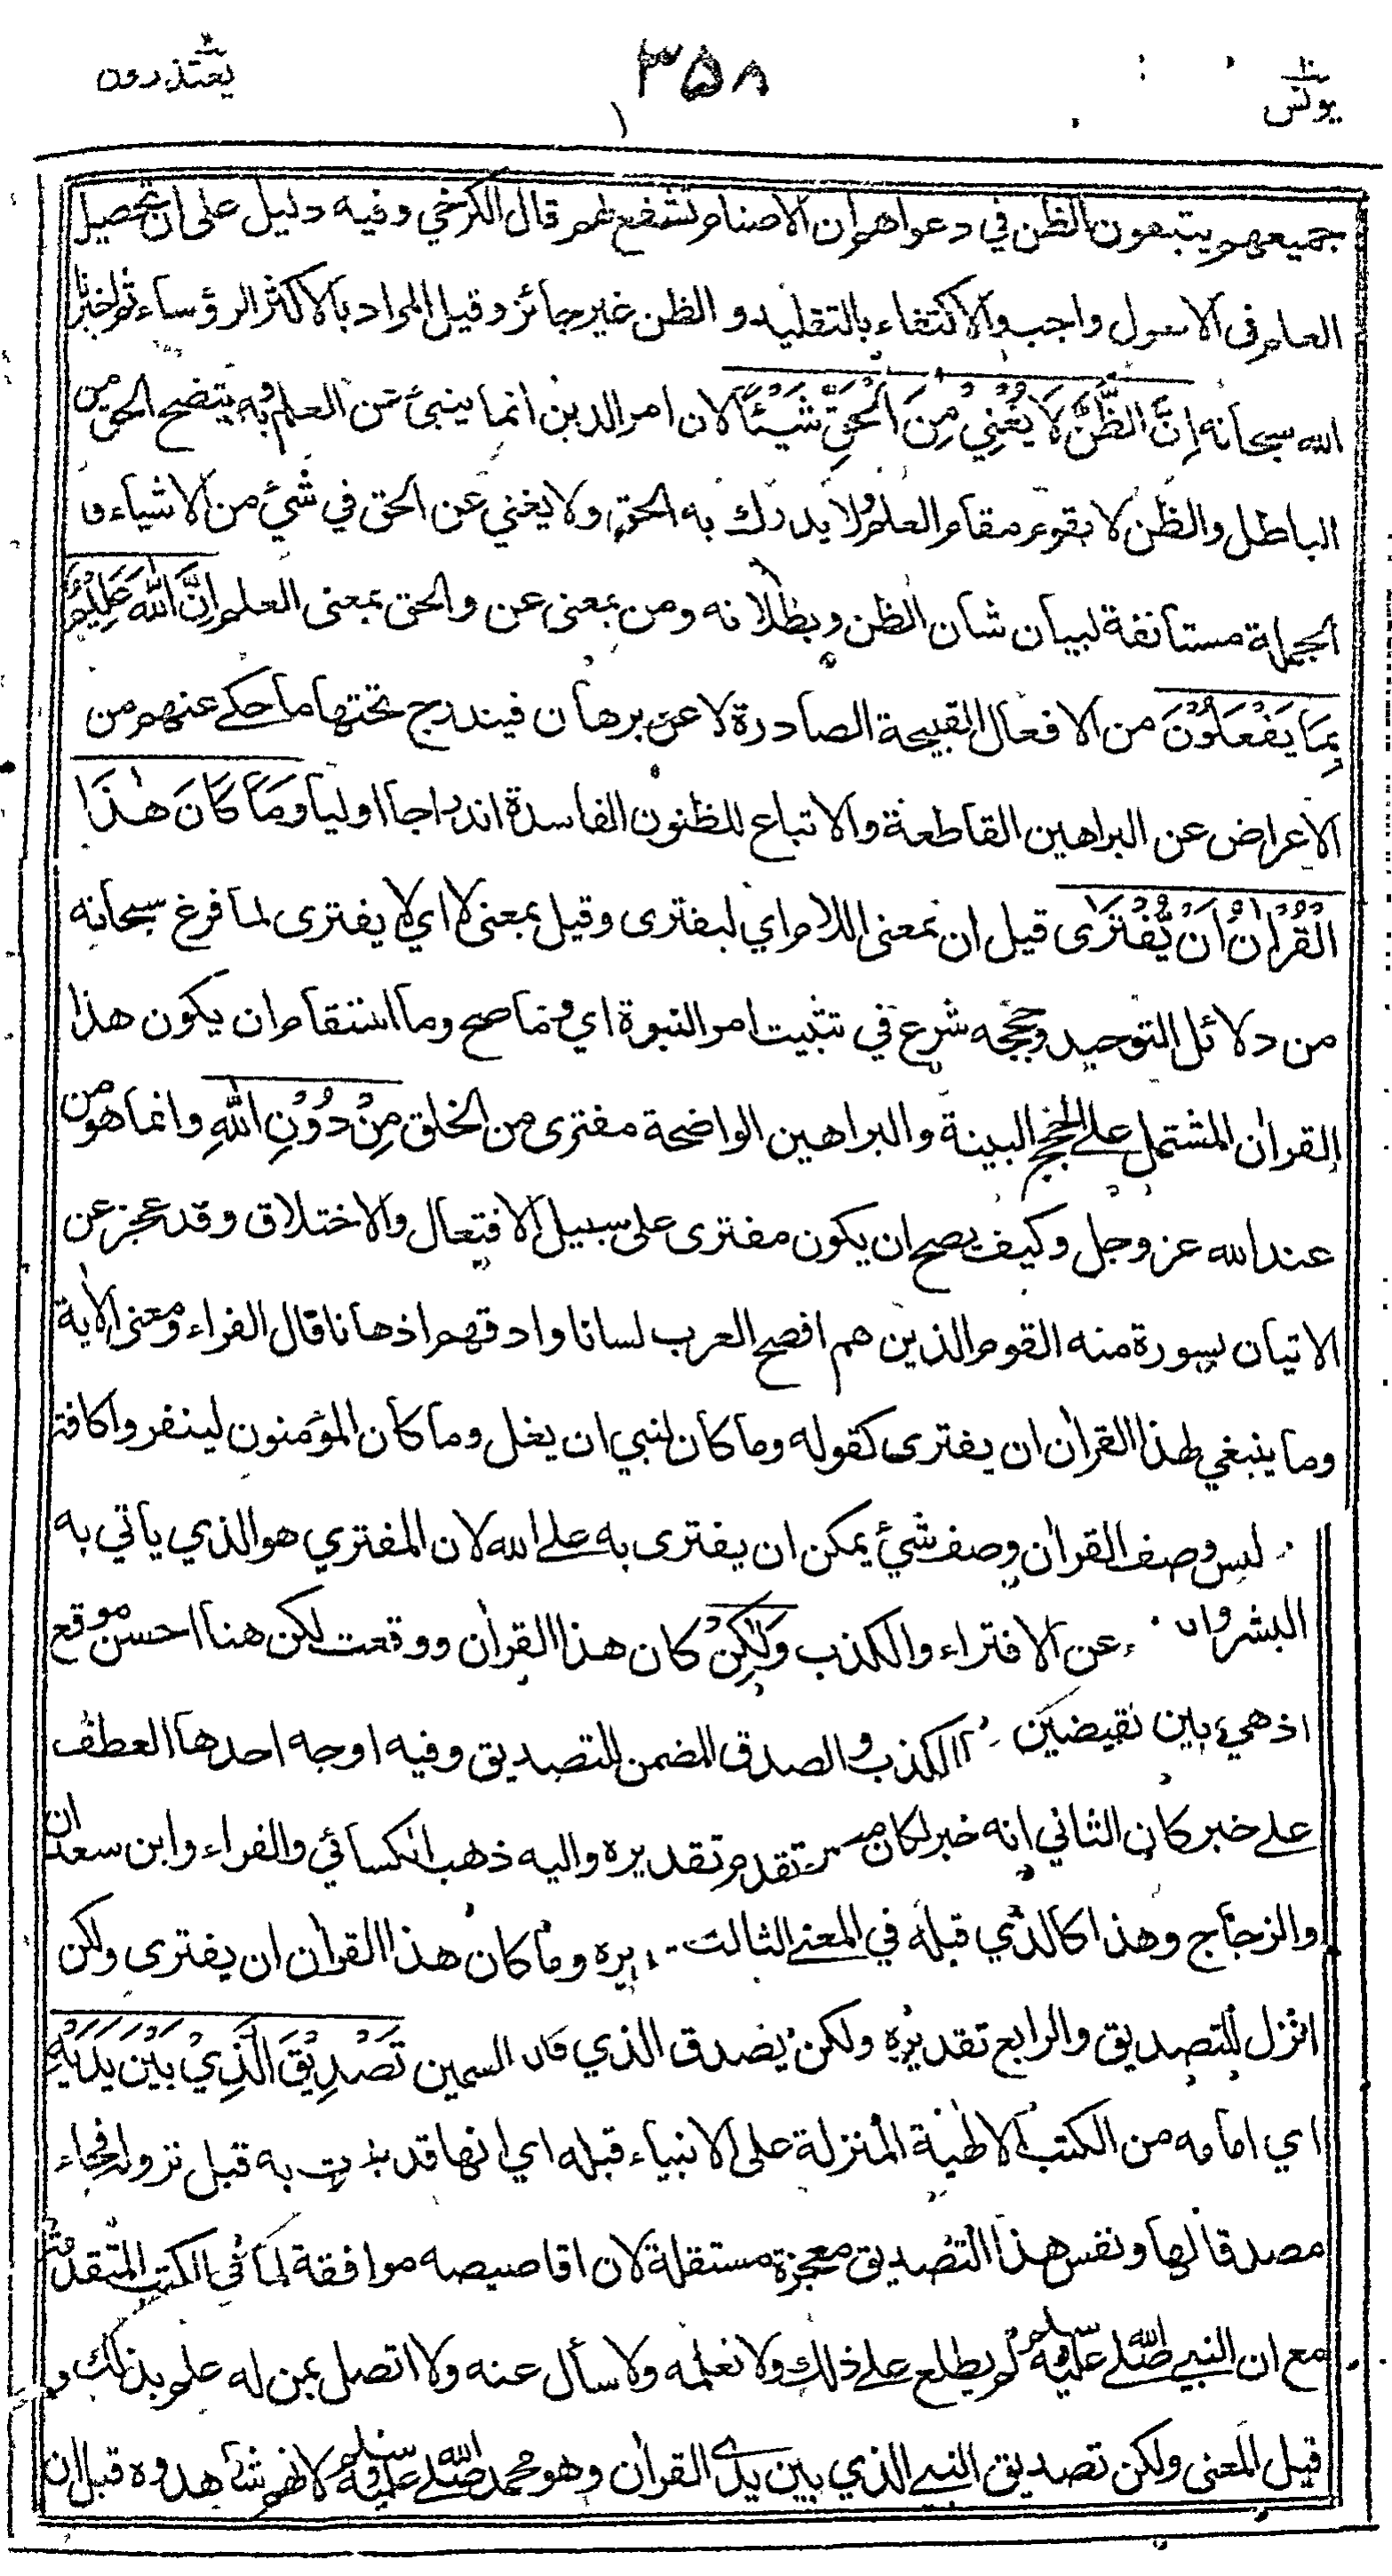 يونس
١٠
٣٥٨
يعتذرون
١١
جميعهم يتبعون الظن في دعواهم ان الاصنام تشفع لهم قال الكرخي وفيه دليل على ان تحصيل
العلم فى الاصول واجب والاكتفاء بالتقليد والظن غير جائز وقيل المراد بالاكثر الرؤساء ثم اخبرنا
الله سبحانه اِنَّ الظَّنَّ لَا يُغْنِيْ مِنَ الْحَقِّ شَيْئًا لان امر الدين انما ينبئ عن العلم وبه يتضح الحق من
الباطل والظن لا يقوم مقام العلم ولا يدرك به الحق ولا يغني عن الحق في شيء من الاشياء و
الجملة مستانفة لبيان شان الظن وبطلانه ومن بمعنى عن والحق بمعنى العلم اِنَّ اللّٰهَ عَلِيْمٌ
بِمَا يَفْعَلُوْنَ من الافعال القبيحة الصادرة لا عن برهان فيندرج تحتها ما حكے عنهم من
الاعراض عن البراهين القاطعة والاتباع للظنون الفاسدة اندراجا اوليا وَمَا كَانَ هٰذَا
الْقُرْاٰنُ اَنْ يُّفْتَرٰى قيل ان بمعنى اللام اي ليفترى وقيل بمعنى لا اي لا يفترى لما فرغ سبحانه
من دلائل التوحيد وحججه شرع في تثبيت امر النبوة اي وما صح وما استقام ان يكون هذا
القران المشتمل علے الحجج البينة والبراهين الواضحة مفترى من الخلق مِنْ دُوْنِ اللّٰهِ وانما هو من
عند الله عز وجل وكيف يصح ان يكون مفترى على سبيل الافتعال والاختلاق وقد عجز عن
الاتيان بسورة منه القوم الذين هم افصح العرب لسانا وادقهم اذهانا قال الفراء ومعنى الاٰية
وما ينبغي لهذا القران ان يفترى كقوله وما كان لنبي ان يغل وما كان المؤمنون لينفروا كافة
ليس وصف القران وصف شيء يمكن ان يفترى به علے الله لان المفتري هو الذي ياتي به
البشر عن الافتراء والكذب وَلٰكِنْ كان هذا القران ووقعت لكن هنا احسن موقع
اذ هي بين نقيضين الكذب والصدق المضمن للتصديق وفيه اوجه احدها العطف
علے خبر كان الثاني انه خبر لكان تقدم تقديره واليه ذهب الكسائي والفراء وابن سعدان
والزجاج وهذا كالذي قبله في المعنے الثالث وما كان هذا القران ان يفترى ولكن
انزل للتصديق والرابع تقديره ولكن يصدق الذي قال السمين تَصْدِيْقَ الَّذِيْ بَيْنَ يَدَيْهِ
اي امامه من الكتب الالهية المنزلة على الانبياء قبله اي انها قد به قبل نزوله فجاء
مصدقا لها ونفس هذا التصديق معجزة مستقلة لان اقاصيصه موافقة لما في الكتب المتقدمة
مع ان النبي صلے الله عليه وسلم لم يطلع علے ذلك ولا تعلمه ولا سأل عنه ولا اتصل بمن له علم بذلك و
قيل المعنى ولكن تصديق النبے الذي بين يدے القران وهو محمد صلے الله عليه وسلم لانهم شاهدوه قبل ان